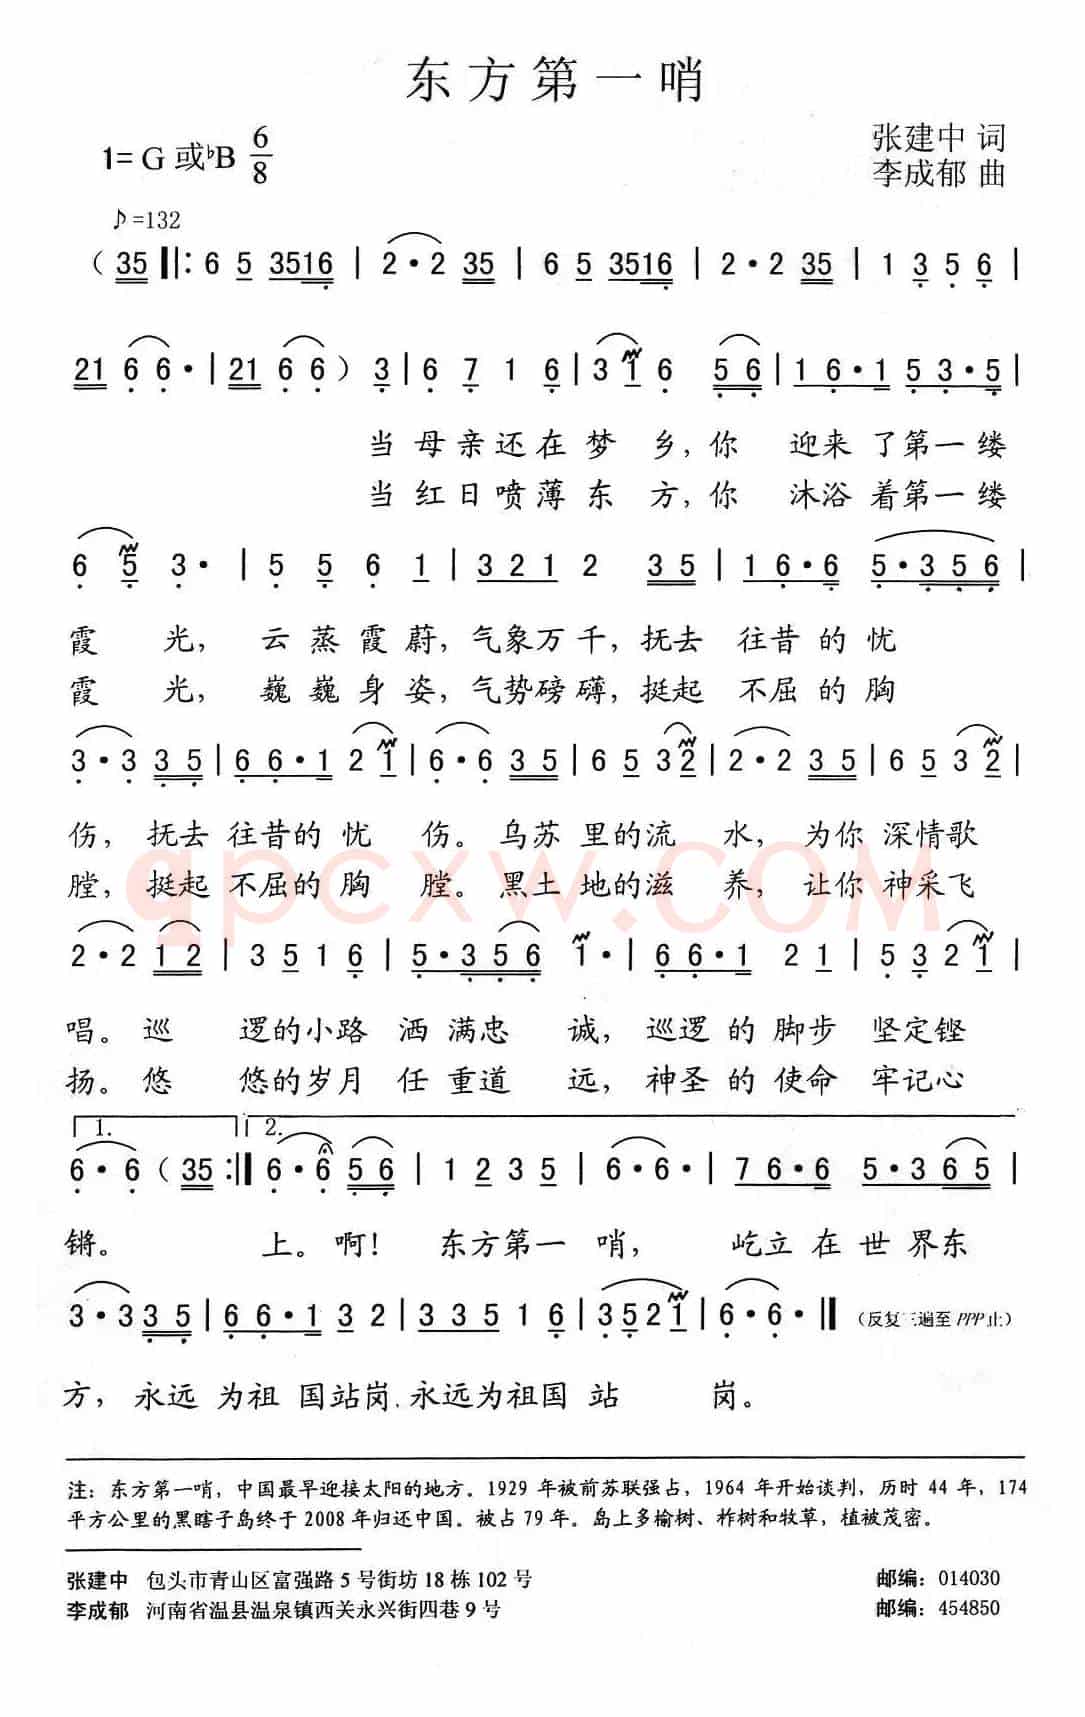 东方第一哨
1=G或♭B 6/8
张建中 词
李成郁 曲
♪=132
（35‖: 6 5 3516 | 2·2 35 | 6 5 3516 | 2·2 35 | 1 3 5 6 |
21 6 6· | 21 6 6·） 3 | 6 7 1 6 | 3 1 6 5 6 | 1 6·1 5 3·5 |
当母亲还在梦 乡，你 迎来了第一缕
当红日喷薄东 方，你 沐浴着第一缕
6 5 3· | 5 5 6 1 | 3 2 1 2 3 5 | 1 6·6 5·3 5 6 |
霞 光， 云蒸霞蔚，气象万千，抚去 往昔的忧
霞 光， 巍巍身姿，气势磅礴，挺起 不屈的胸
3·3 3 5 | 6 6·1 2 1 | 6·6 3 5 | 6 5 3 2 | 2·2 3 5 | 6 5 3 2 |
伤， 抚去 往昔的忧 伤。乌苏里的流 水， 为你深情歌
膛， 挺起 不屈的胸 膛。黑土地的滋 养， 让你神采飞
2·2 1 2 | 3 5 1 6 | 5·3 5 6 1· | 6 6·1 2 1 | 5 3 2 1 |
唱。巡 逻的小路 洒满忠 诚，巡逻的脚步 坚定铿
扬。悠 悠的岁月 任重道 远，神圣的使命 牢记心
1. 2.
6·6（35:‖ 6·6 5 6 | 1 2 3 5 | 6·6· | 7 6·6 5·3 6 5 |
锵。 上。啊！ 东方第一 哨， 屹立在世界东
3·3 3 5 | 6 6·1 3 2 | 3 3 5 1 6 | 3 5 2 1 | 6·6· ‖ （反复三遍至PPP止）
方，永远 为祖国站岗，永远为祖国站 岗。
注：东方第一哨，中国最早迎接太阳的地方。1929 年被前苏联强占，1964 年开始谈判，历时 44 年，174
平方公里的黑瞎子岛终于 2008 年归还中国。被占 79 年。岛上多榆树、柞树和牧草，植被茂密。
张建中 包头市青山区富强路 5 号街坊 18 栋 102 号 邮编：014030
李成郁 河南省温县温泉镇西关永兴街四巷 9 号 邮编：454850
qpcxw.COM